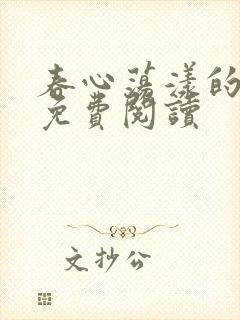 春心蕩漾的
免費閱讀
文抄公